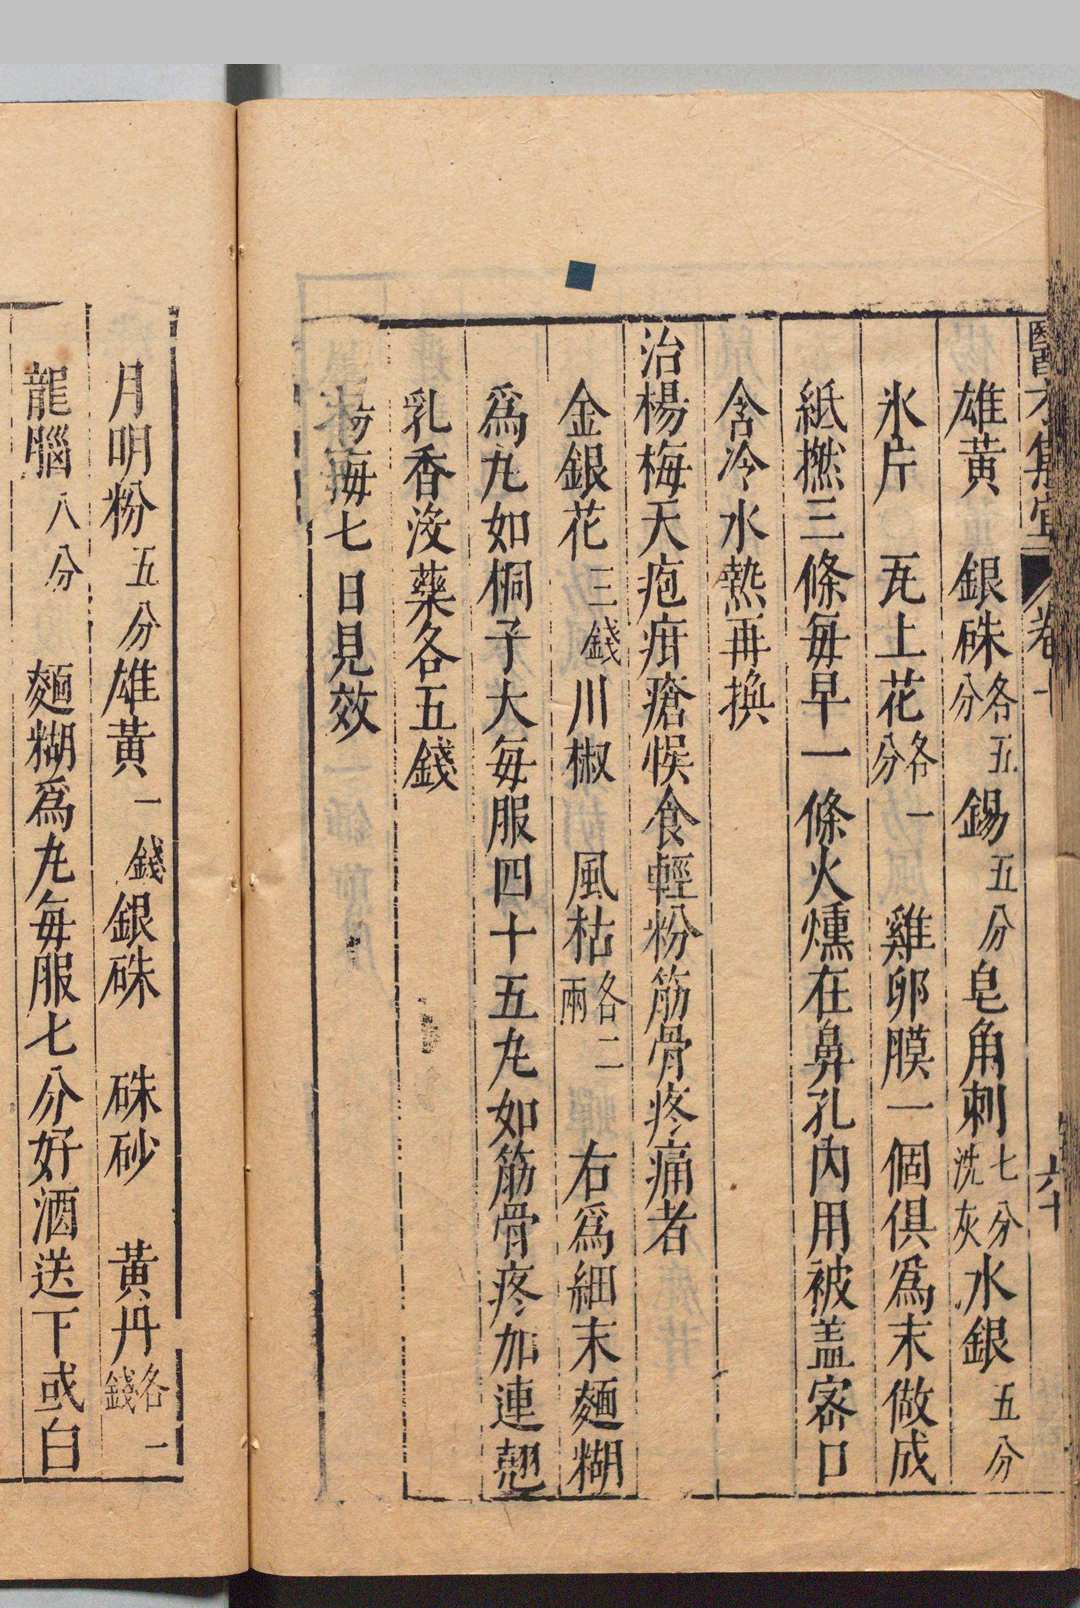 雄黃 銀硃各五分 錫五分 皂角刺七分洗灰 水銀五分
氷片 瓦上花各一分 雞卵膜一個俱爲末做成
紙撚三條每早一條火燻在鼻孔內用被盖密口
含冷水熱再換
治楊梅天疱疳瘡悞食輕粉筋骨疼痛者
金銀花三錢 川椒 風枯各二兩 右爲細末麵糊
爲丸如桐子大每服四十五丸如筋骨疼加連翹
乳香沒藥各五錢
七日見效
月明粉五分 雄黃一錢 銀硃 硃砂 黃丹各一錢
龍腦八分 麵糊爲丸每服七分好酒送下或白